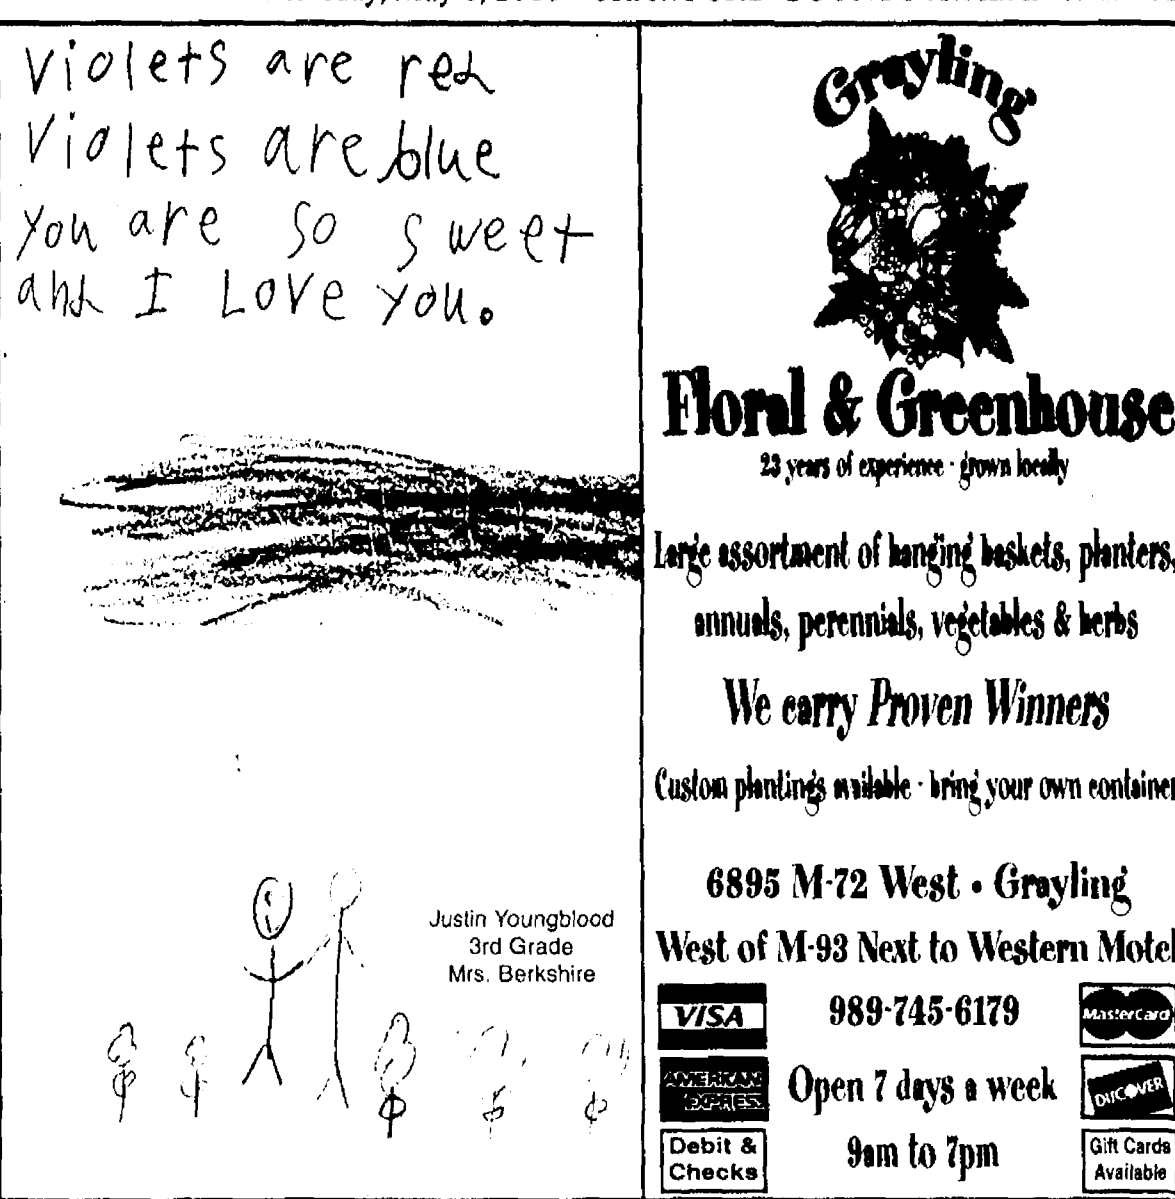 Violets are red
Violets are blue
you are so sweet
and I Love you.
Justin Youngblood
3rd Grade
Mrs. Berkshire
Grayling
Floral & Greenhouse
23 years of experience · grown locally
Large assortment of hanging baskets, planters,
annuals, perennials, vegetables & herbs
We carry Proven Winners
Custom plantings available · bring your own container
6895 M-72 West • Grayling
West of M-93 Next to Western Motel
VISA
989-745-6179
MasterCard
AMERICAN EXPRESS
Open 7 days a week
DISCOVER
Debit & Checks
9am to 7pm
Gift Cards Available